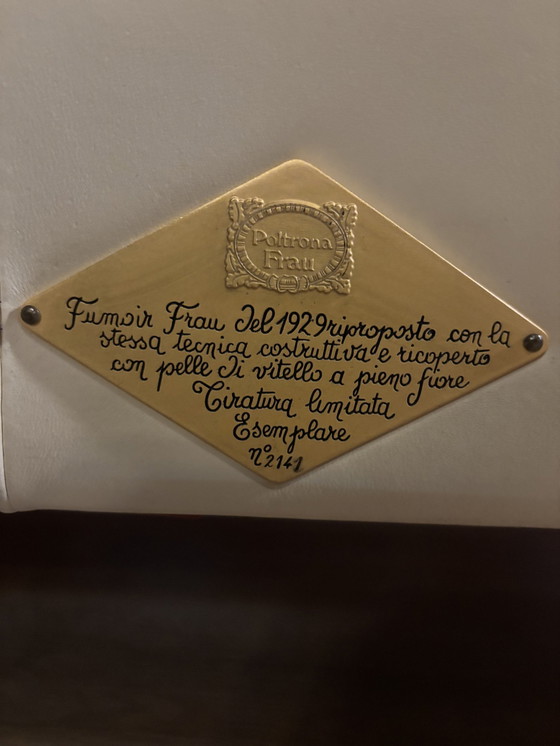 Poltrona
Frau
Fumoir Frau del 1929 riproposto con la
stessa tecnica costruttiva e ricoperto
con pelle di vitello a pieno fiore
Tiratura limitata
Esemplare
n° 2141